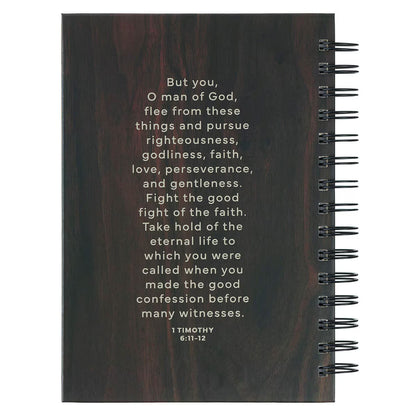 But you,
O man of God,
flee from these
things and pursue
righteousness,
godliness, faith,
love, perseverance,
and gentleness.
Fight the good
fight of the faith.
Take hold of the
eternal life to
which you were
called when you
made the good
confession before
many witnesses.
1 TIMOTHY
6:11-12